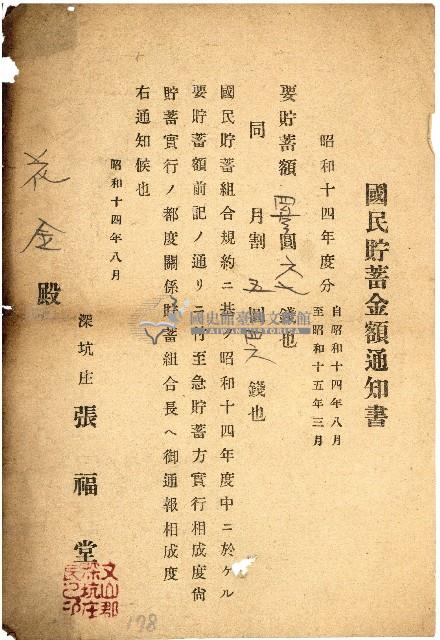 國民貯蓄金額通知書
昭和十四年度分
自昭和十四年八月
至昭和十五年三月
要貯蓄額 圓 錢也
同 月割 五圓四六錢也
國民貯蓄組合規約ニ基キ昭和十四年度中ニ於ケル
要貯蓄額前記ノ通リニ付至急貯蓄方實行相成度尙
貯蓄實行ノ都度關係貯蓄組合長ヘ御通報相成度
右通知候也
昭和十四年八月
深坑庄 張福堂
文山郡
深坑庄
長之印
金殿
國史館臺灣文獻館
TAIWAN HISTORICA
178